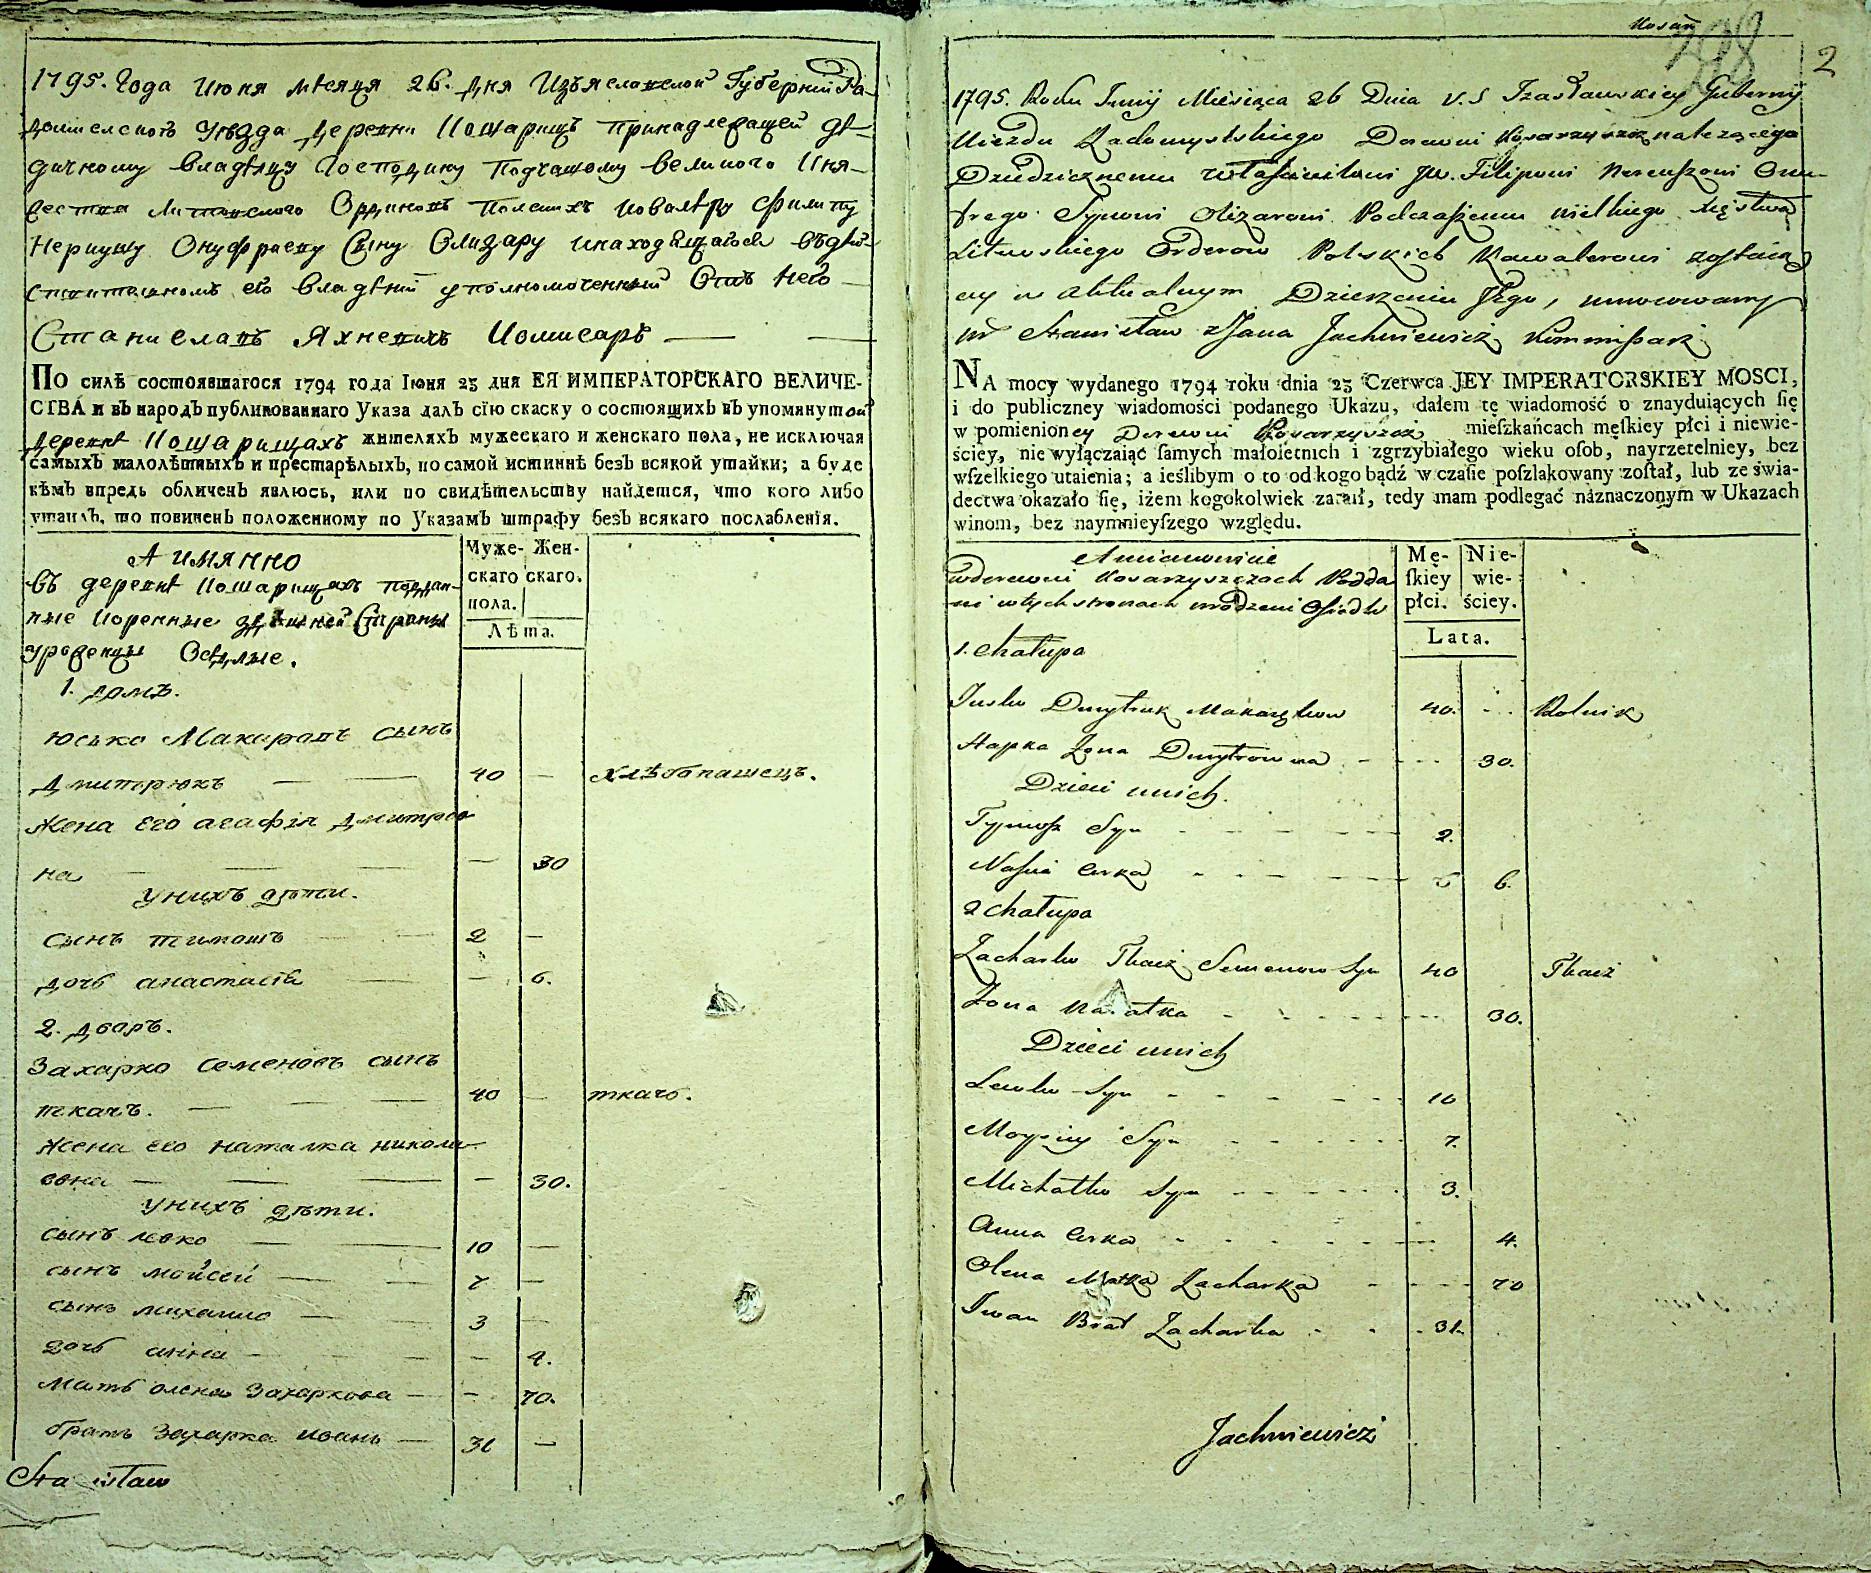 1795. Года Июня месяца 26. дня Изъяславской Губернии Ра-
домыслского уезда деревни Кошарищъ принадлежащей де-
дичному владелцу Господину Подчашому великого Кня-
жества Литовского Ординовъ Полскихъ Кавалеру Филипу
Нериушу Онуфриеву Сыну Олизару инаходящагося въдей-
ствителномъ его владении уполномоченный Отъ Него
Станиславъ Яхневичъ Комисаръ
ПО силѣ состоявшагося 1794 года Іюня 23 дня ЕЯ ИМПЕРАТОРСКАГО ВЕЛИЧЕ-
СТВА и въ народъ публикованнаго Указа далъ сію скаску о состоящихъ въ упомянутой
деревне Кошарищахъ жителяхъ мужескаго и женскаго пола, не исключая
самыхъ малолѣтныхъ и престарѣлыхъ, по самой истиннѣ безъ всякой утайки; а буде
кѣмъ впредь обличенъ явлюсь, или по свидѣтельству найдется, что кого либо
утаилъ, то повиненъ положенному по Указамъ штрафу безъ всякаго послабленія.
А имянно
въ деревне Кошарищахъ поддан-
ные коренные здешней Страны
уроженцы Оседлые.
Муже- Жен-
скаго скаго.
пола.
Лѣта.
1. домъ.
юсько Макаровъ сынъ
дмитрюкъ — 40 — хлѣбопашецъ.
Жена его агафія дмитров
на — — 30
унихъ дѣти.
сынъ тимошъ — 2 —
дочь анастасія — — 6.
2. дворъ.
Захарко семеновъ сынъ
ткачъ. — 40 — ткачь.
жена его наталка никола
евна — — 30.
унихъ дѣти.
сынъ левко — 10 —
сынъ мойсей — 7 —
сынъ михайло — 3 —
дочь анна — — 4.
мать олена Захаркова — — 70.
братъ захарка иванъ — 31 —
2
1795. Roku Junij Miesiąca 26 Dnia V. S Izasławskiey Gubernij
Uiezdu Radomyslskiego Derewni Kosarzyszcz należącego
Dziedzicznemu własciicilowi Jw. Filipowi Nereuszowi Onu-
frego Synowi Olizarowi Podczaszemu wielkiego Xięstwa
Litewskiego Orderow Polskich Kawalerowi zostaią
cey w Aktualnym Dzierzeniu Jego, umocowany
Stanisław Jachniewicz Kommissarz
NA mocy wydanego 1794 roku dnia 23 Czerwca JEY IMPERATORSKIEY MOSCI,
i do publiczney wiadomości podanego Ukazu, dałem tę wiadomość o znayduiących się
w pomienioney Derewni Kosarzyszcz mieszkańcach męskiey płci i niewie-
ściey, nie wyłączaiąc samych małoletnich i zgrzybiałego wieku osob, nayrzetelniey, bez
wszelkiego utaienia; a ieślibym o to od kogo bądź w czasie poszlakowany został, lub ze świa-
dectwa okazało się, iżem kogokolwiek zataił, tedy mam podlegać naznaczonym w Ukazach
winom, bez naymnieyszego względu.
Amianowicie
wderewni Kosarzyszczach Podda
ni wtych stronach urodzeni Osiadli
Mę- Nie-
skiey wie-
płci. ściey.
Lata.
1. Chałupa
Jusko Dmytruk Makarzkow 40. Rolnik
Hapka Żona Dmytrowna 30.
Dzieci unich.
Tymosz Syn 2.
Nascia Corka 6.
2 Chałupa
Zacharko Tkacz Semenow Syn 40 Tkacz
Żona Na atka 30.
Dzieci unich
Lewko Syn 10
Moysiey Syn 7.
Michałko Syn 3.
Anna Corka 4.
Olena Matka Zacharka 70
Iwan Brat Zacharka 31.
Jachniewicz
Sta isław